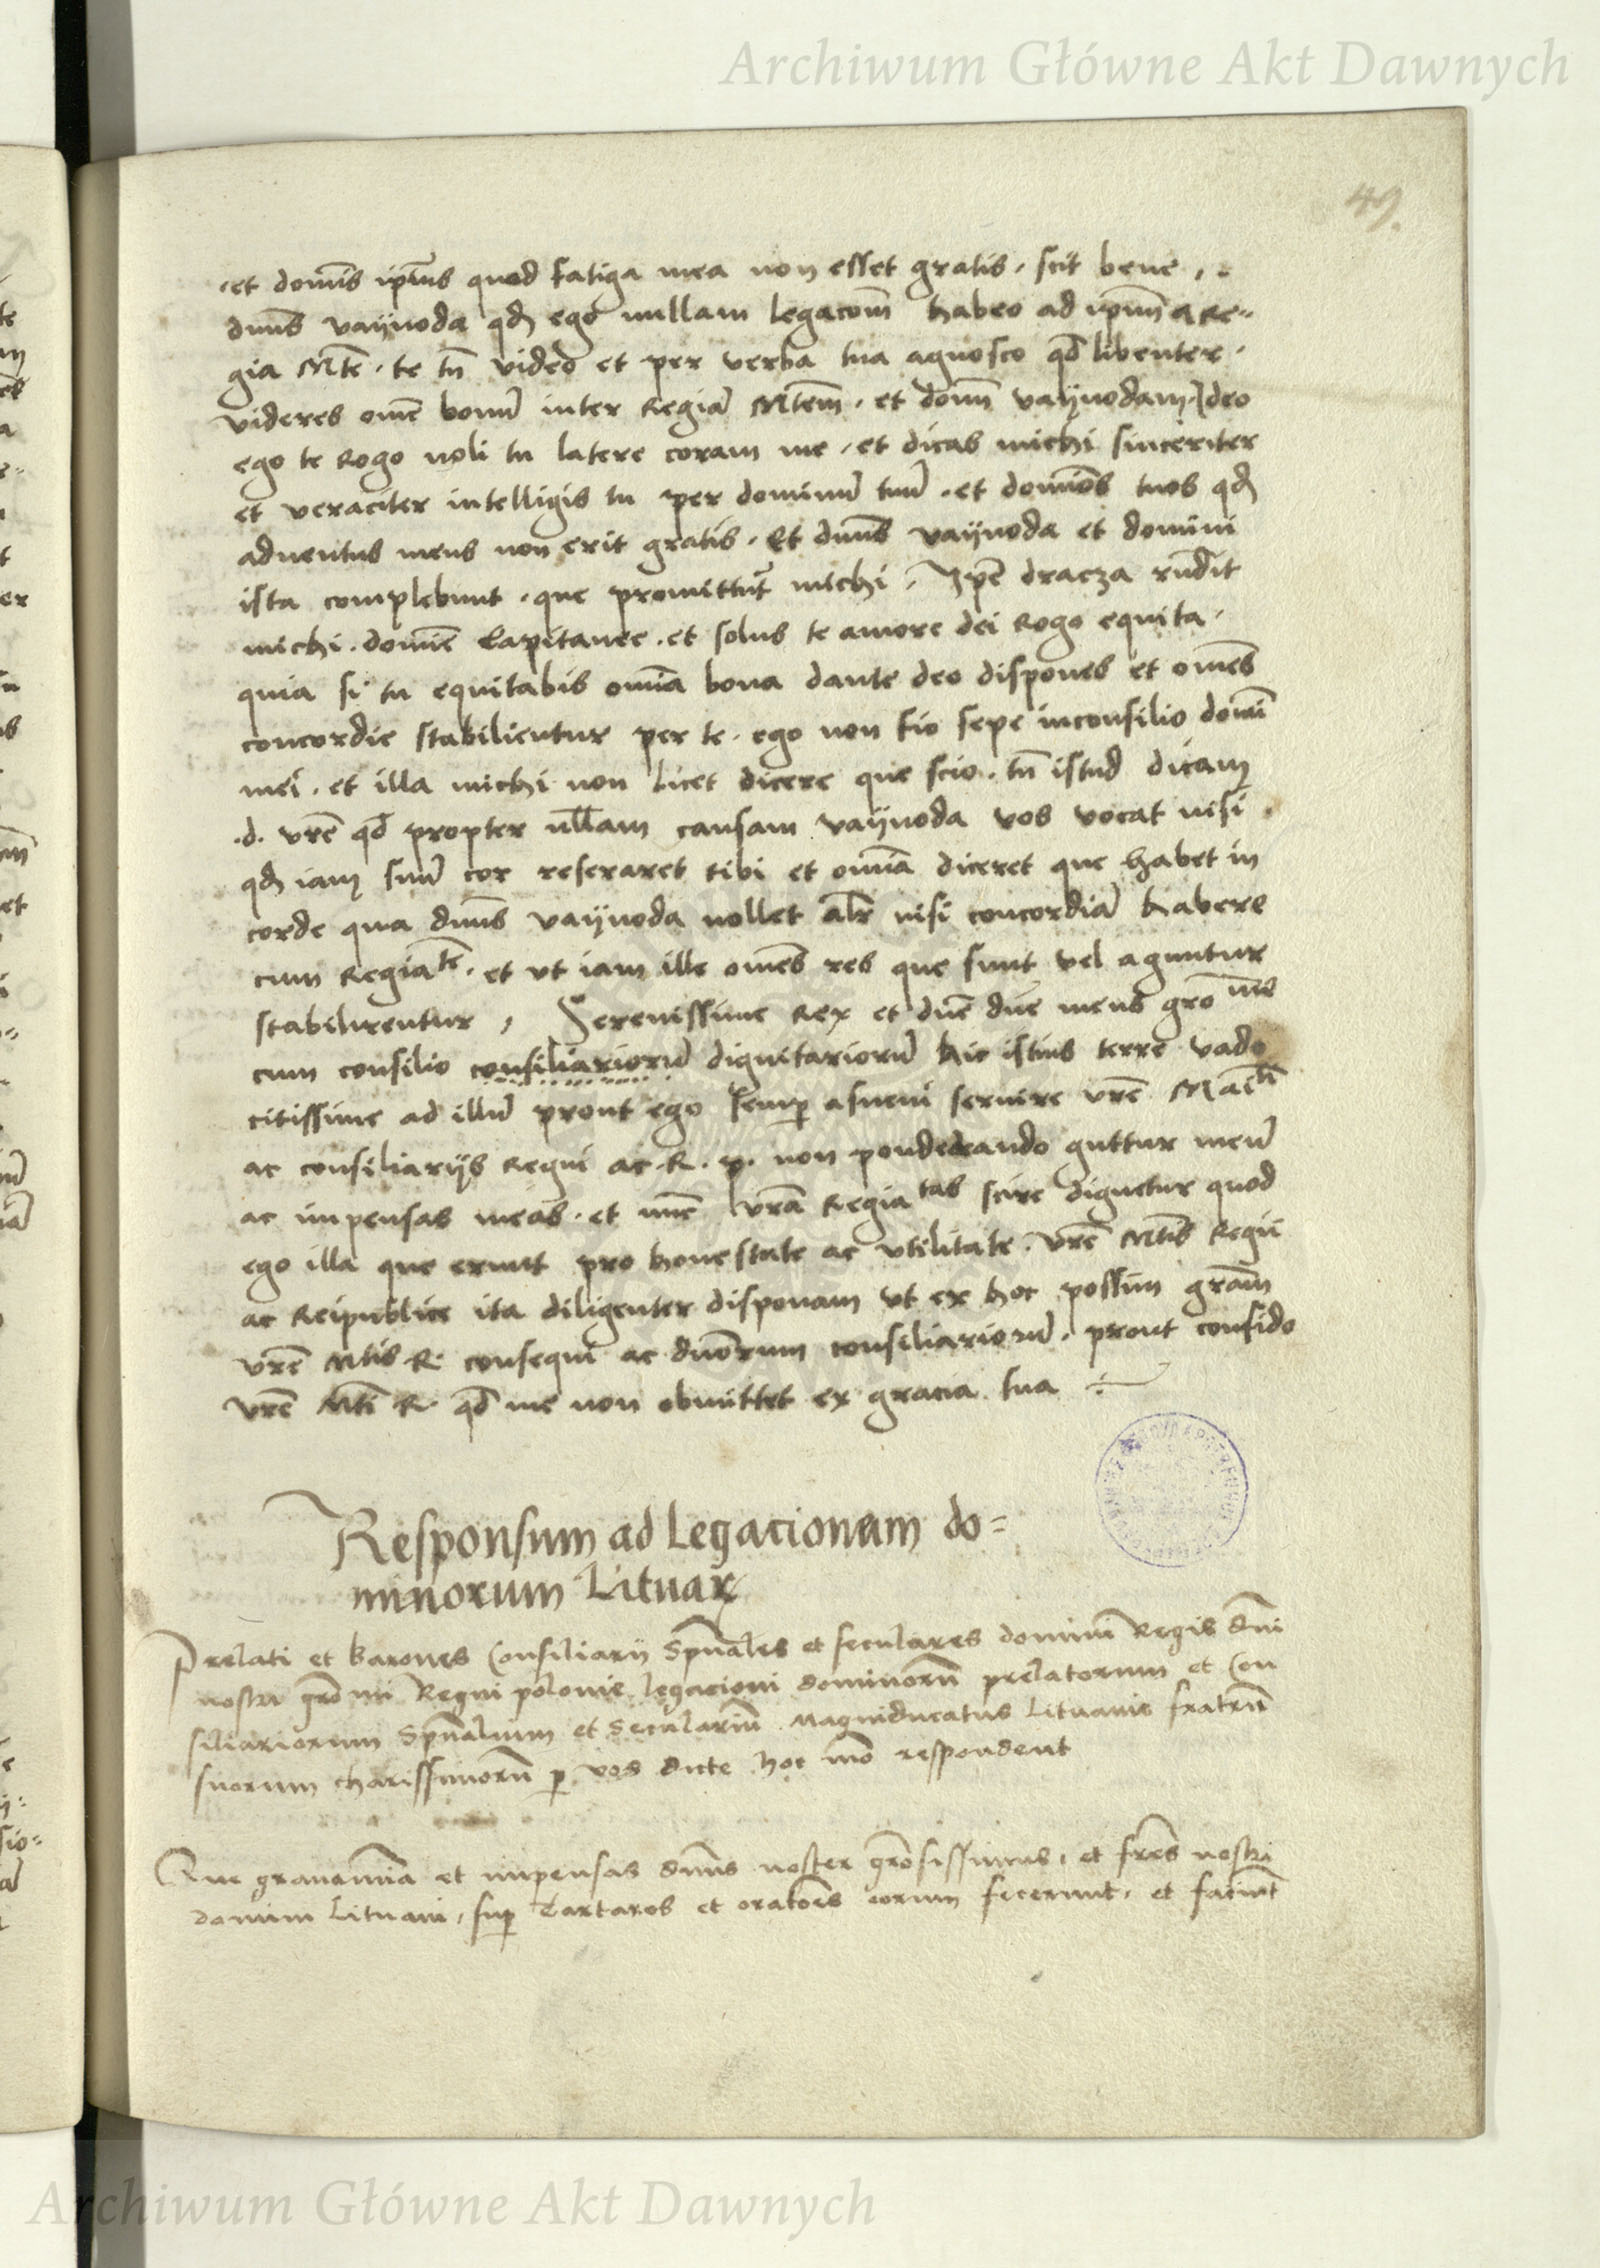 Archiwum Główne Akt Dawnych
49.
et domĩs ip̃ius quod fatiga mea non esset gratis, scit bene,
dñus vaÿvoda qd̃ ego nullam legacoñ habeo ad ip̃m a Re-
gia Mte̅. te tn̅ video et per verba tua agnosco qd̃ libenter.
videres om̃e bonũ inter Regiã Mte̅m. et dom̃ vaÿvodam. Ideo
ego te Rogo noli tu latere coram me. et dicas michi sinceriter
et veraciter intelligis tu per dominũ tuũ. et domĩos tuos qd̃
adventus meus non erit gratis. Et dñus vaÿvoda et domini
ista complebunt. que promittũt michi. Ip̃e dracza rñdit
michi. domĩe Capitanee. et solus te amore dei Rogo equita.
quia si tu equitabis om̃ia bona dante deo dispones et om̃es
concordie stabilientur per te. ego non fio sepe inconsilio domĩ
mei. et illa michi non licet dicere que scio. tn̅ istud dicam
.d. vr̃e qd̃ propter nllam causam vaÿvoda vos vocat nisi.
qd̃ iam suũ cor reseraret tibi et om̃ia diceret que habet in
corde quia dñus vaÿvoda nollet alr̃ nisi concordiã habere
cum Regia te. et ut iam ille om̃es res que sunt vel aguntur
stabilirentur, Serenissime Rex et dñe dñe meus gr̃o me
cum consilio consiliariorũ dignitariorũ hic istius terre vado
citissime ad illũ prout ego semp̱ asuevi servire vr̃e Maiti
ac consiliariÿs Regni ac. R. p. non ponderando guttur meũ
ac impensas meas. et nũc vr̃a Regia tas scire dignetur quod
ego illa que erunt pro honestate ac utilitate. vr̃e Mtis Regni
ac Reipublice ita diligenter disponam ut ex hoc possim gr̃am
vr̃e Mtis R. consequi ac dñorum consiliariorũ. prout confido
vr̃e Mti R. qd̃ me non obmittet ex gracia tua
Responsum ad Legacionem do=
minorum Lituaꝝ
Prelati et barones Consiliarij Sp̃uales et seculares domini Regis dñi
nostri gr̃o mi Regni polonie legacioni dominorũ prelatorum et Con
siliariorum Sp̃ualium et Seculariũ Magniducatus Lituanie fratrũ
suorum charissimorũ ꝑ vos dicte hoc mo respondent
Que gravamĩa et impensas dñus noster gr̃osissimus, et fr̃es nostri
domini Lituani, sup̱ Tartaros et orato͂es eorum fecerunt, et faciũt
Archiwum Główne Akt Dawnych